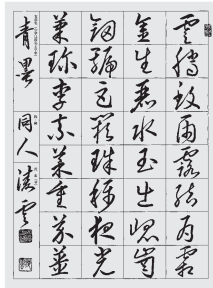 雲騰致雨露結為霜
金生麗水玉出崐岡
劍號巨闕珠稱夜光
菓珍李柰菜重芥薑
青墨 同人